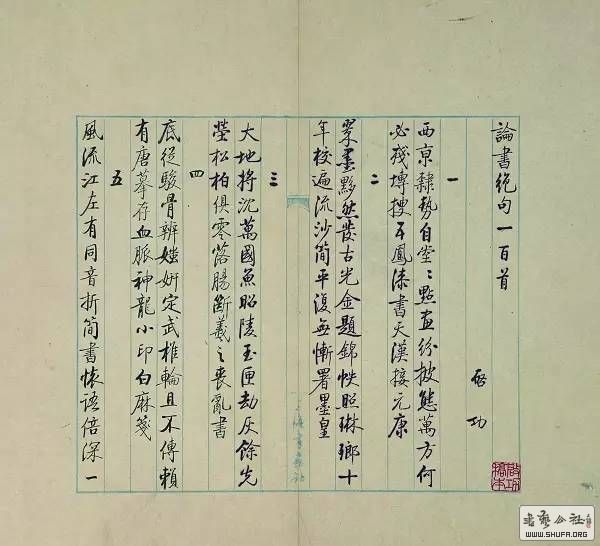 論書絶句一百首
啓功
一
西京隸勢自堂〻點畫紛披態萬方何
必殘塼搜五鳳漆書天漢接元康
二
翠墨黟然發古光金題錦帙照琳瑯十
年校遍流沙簡平復無慚署墨皇
三
大地將沈萬國魚昭陵玉匣劫灰餘先
塋松柏俱零落腸斷羲之喪亂書
四
底從駿骨辨媸妍定武椎輪且不傳賴
有唐摹存血脈神龍小印白麻箋
五
風流江左有同音折簡書懷語倍深一
書藝公社
WWW.SHUFA.ORG